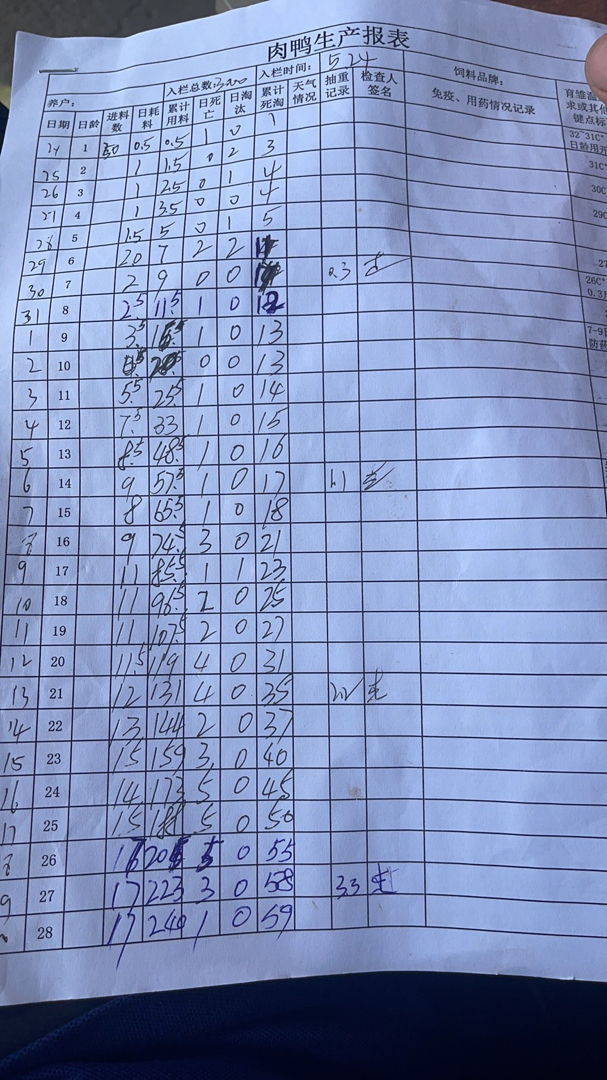 肉鸭生产报表
养户: 入栏总数:300 入栏时间: 524 饲料品牌:
日期 日龄 进料数 日耗料 累计用料 日死亡 日淘汰 累计死淘 天气情况 抽重记录 检查人签名 免疫、用药情况记录
24 1 0.5 0.5 1 0 1 32~31C°
25 2 1 1.5 0 2 3 31C°
26 3 1 2.5 0 1 4 30C°
4 1 3.5 0 0 4 29C
28 5 1.5 5 0 1 5
29 6 2.0 7 2 2 27
30 7 2 9 0 0 26C°
31 8 2.5 11.5 1 0 12 0.3
1 9 3.5 1 0 13 7-9日
2 10 0 0 13 防药
3 11 5.5 25.5 1 0 14
4 12 7.5 33 1 0 15
5 13 8.5 48.5 1 0 16
6 14 9 57.5 1 0 17
7 15 8 65.5 1 0 18
16 9 74.5 3 0 21
9 17 11 85.5 1 1 23
10 18 11 96.5 2 0 25
11 19 11 107.5 2 0 27
12 20 11.5 119 4 0 31
13 21 12 131 4 0 35
14 22 13 144 2 0 37
15 23 15 159 3 0 40
16 24 14 173 5 0 45
17 25 15 5 0 50
26 5 0 55
9 27 17 223 3 0 58 3.3
28 17 240 1 0 59